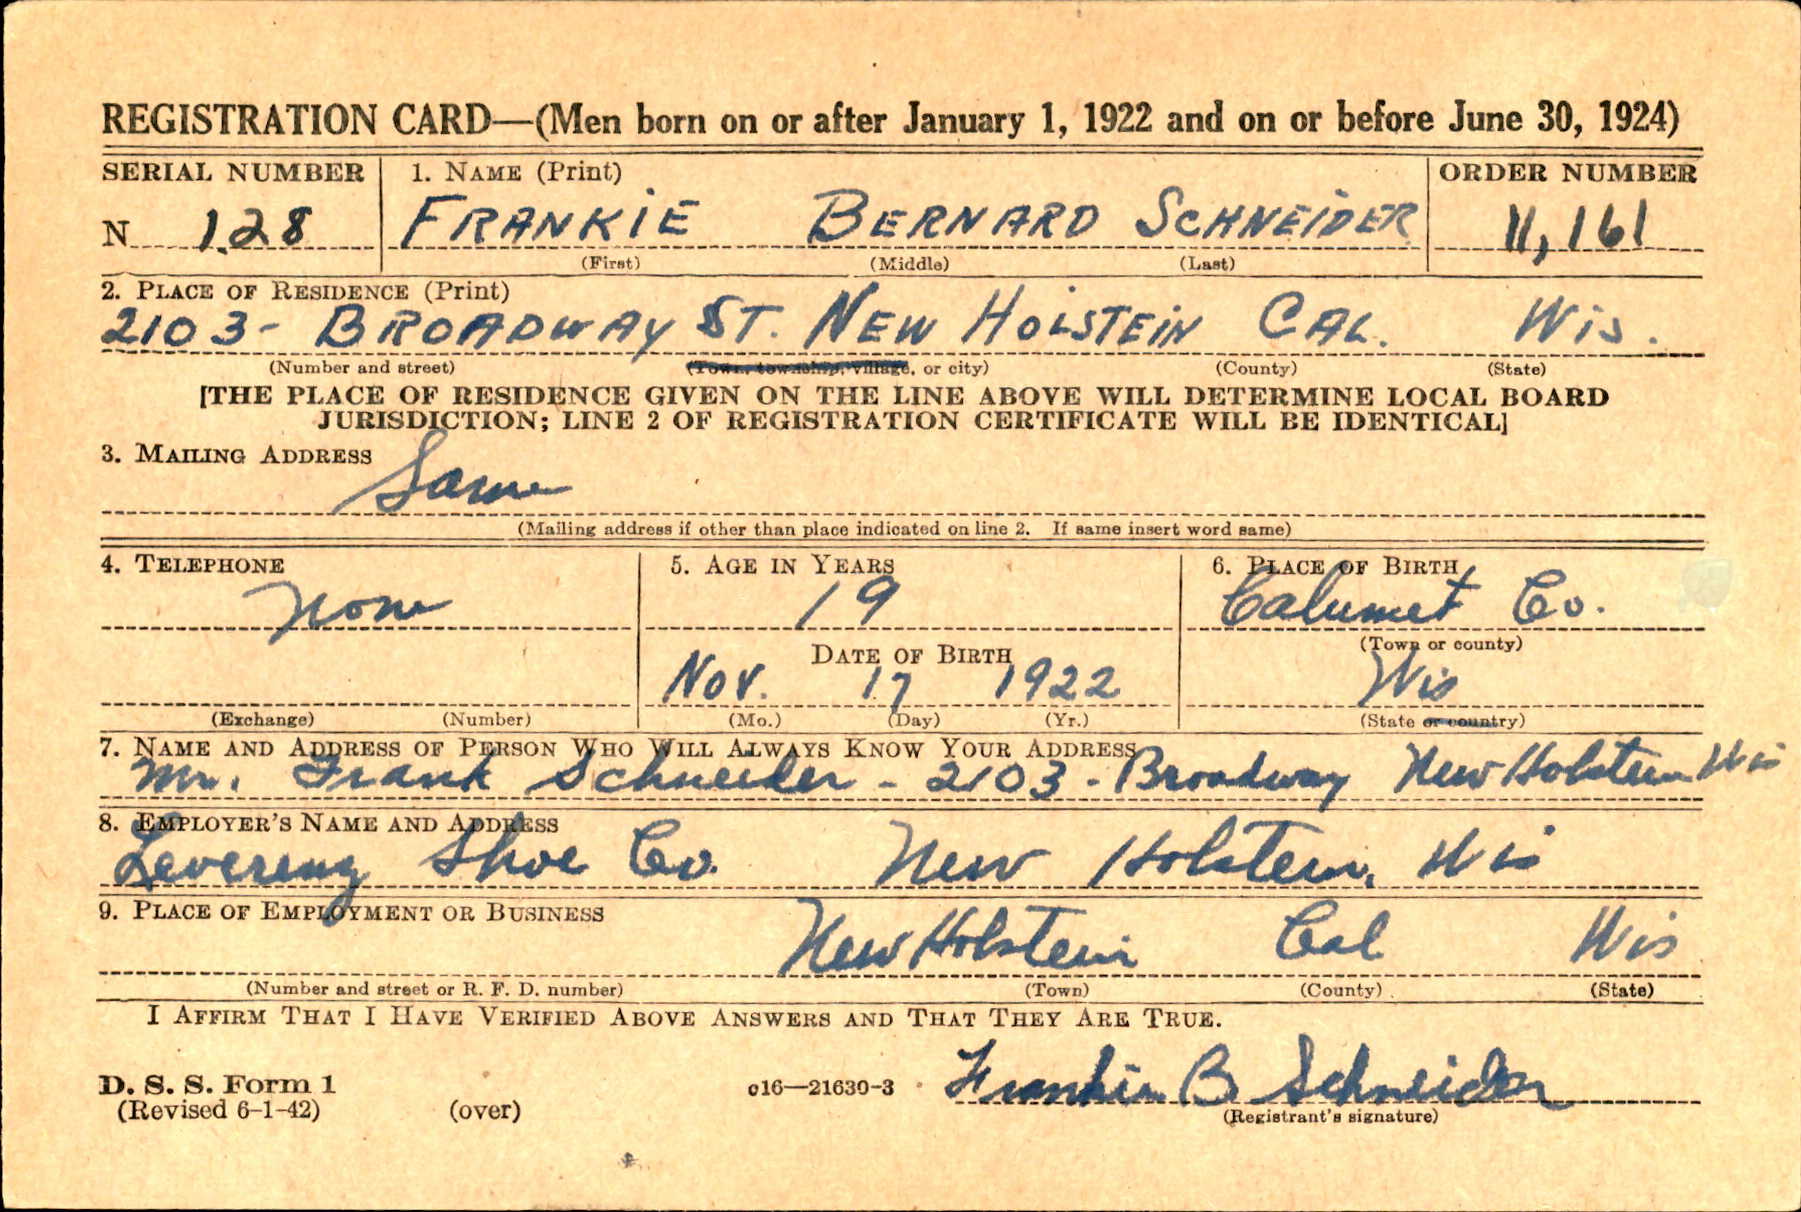 REGISTRATION CARD—(Men born on or after January 1, 1922 and on or before June 30, 1924)
SERIAL NUMBER 1. NAME (Print) ORDER NUMBER
N 128 FRANKIE BERNARD SCHNEIDER 11,161
(First) (Middle) (Last)
2. PLACE OF RESIDENCE (Print)
2103- BROADWAY ST. NEW HOLSTEIN CAL. WIS.
(Number and street) (Town, township, village, or city) (County) (State)
[THE PLACE OF RESIDENCE GIVEN ON THE LINE ABOVE WILL DETERMINE LOCAL BOARD
JURISDICTION; LINE 2 OF REGISTRATION CERTIFICATE WILL BE IDENTICAL]
3. MAILING ADDRESS
Same
(Mailing address if other than place indicated on line 2. If same insert word same)
4. TELEPHONE 5. AGE IN YEARS 6. PLACE OF BIRTH
None 19 Calumet Co.
DATE OF BIRTH (Town or county)
Nov. 17 1922 Wis
(Exchange) (Number) (Mo.) (Day) (Yr.) (State or country)
7. NAME AND ADDRESS OF PERSON WHO WILL ALWAYS KNOW YOUR ADDRESS
Mr. Frank Schneider - 2103 - Broadway New Holstein Wis
8. EMPLOYER'S NAME AND ADDRESS
Leverenz Shoe Co. New Holstein, Wis
9. PLACE OF EMPLOYMENT OR BUSINESS
New Holstein Cal Wis
(Number and street or R. F. D. number) (Town) (County) (State)
I AFFIRM THAT I HAVE VERIFIED ABOVE ANSWERS AND THAT THEY ARE TRUE.
D. S. S. Form 1 c16—21630-3 Frankie B Schneider
(Revised 6-1-42) (over) (Registrant's signature)